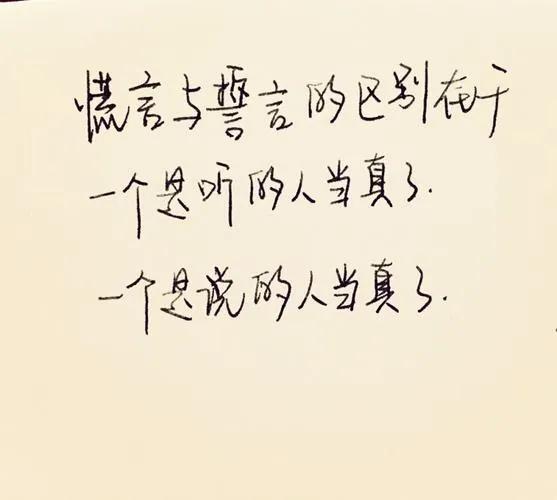 慌言与誓言的区别在于
一个是听的人当真了.
一个是说的人当真了.